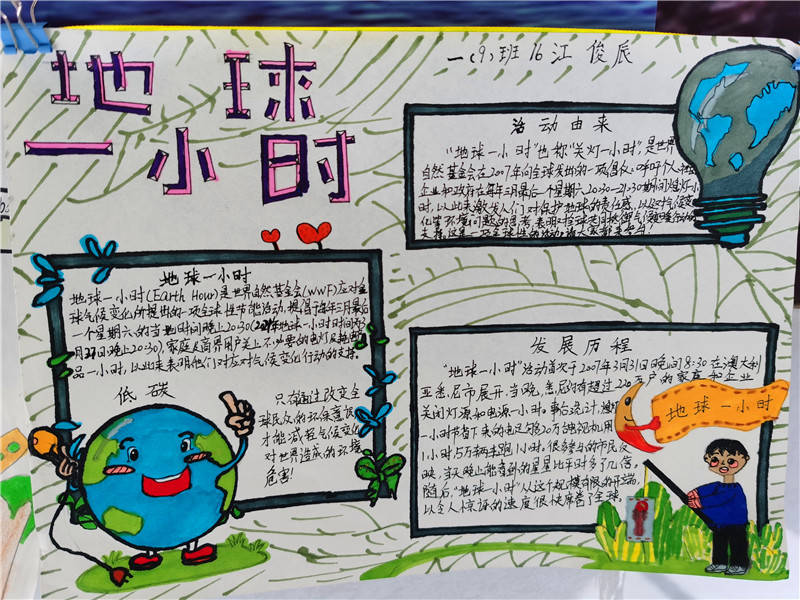 地球
一小时
一(9)班 16 江俊辰
活动由来
"地球一小时"也称"关灯一小时",是世界
自然基金会在2007年向全球发出的一项倡议:呼吁个人、社区
企业和政府在每年三月最后一个星期六20:30-21:30期间熄灯一小
时,以此来激发人们对保护地球的责任感,以及对气候
化等环境问题的思考,表明对全球共同抵御气候变暖行动的
支持。这是一项全球性的活动
地球一小时
地球一小时(Earth Hour)是世界自然基金会(WWF)应对全
球气候变化所提出的一项全球性节能活动,提倡于每年三月最后
一个星期六的当地时间晚上20:30(地球一小时时间为3
月27日晚上20:30),家庭及商界用户关上不必要的电灯及耗电产
品一小时,以此来表明他们对应对气候变化行动的支持。
低碳
只有通过改变全
球民众的环保意识
才能减轻气候变化
对世界造成的环境
危害!
发展历程
"地球一小时"活动首次于2007年3月31日晚间8:30在澳大利
亚悉尼市展开,当晚,悉尼约有超过220万户的家庭和企业
关闭灯源和电源一小时。事后统计,
一小时节省下来的电足够20万台电视机用
1小时,5万辆车跑1小时。很多参与的市民反
映,当天晚上能看到的星星比平时多了几倍。
随后,"地球一小时"从这个规模有限的开端,
以令人惊讶的速度很快席卷了全球。
地球一小时